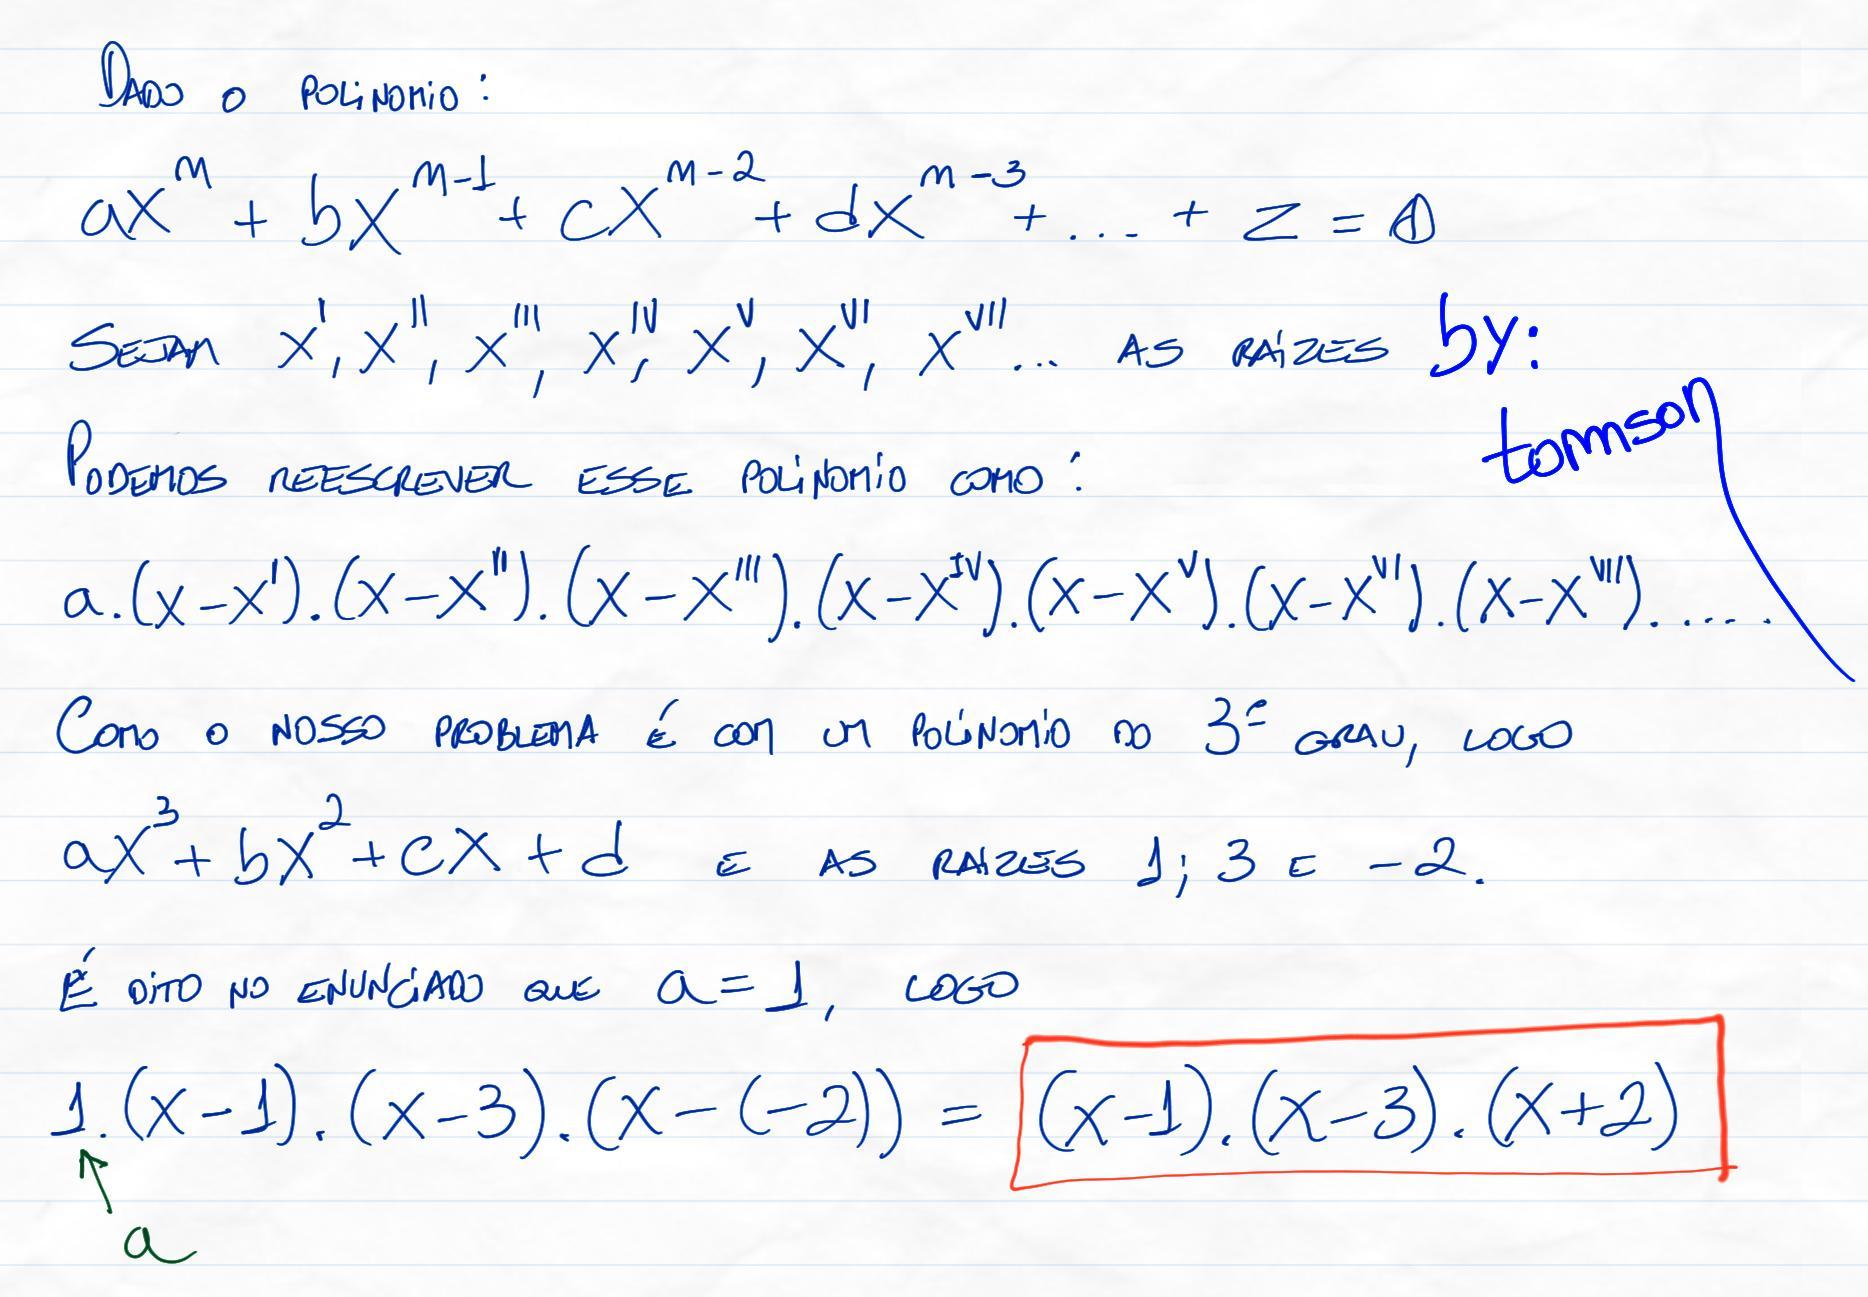 Dado o polinomio:
ax^n + bx^{n-1} + cx^{n-2} + dx^{n-3} + ... + z = 0
Sejam x', x'', x''', x^{IV}, x^V, x^{VI}, x^{VII} ... as raízes
by: tomson
Podemos reescrever esse polinomio como:
a.(x-x').(x-x'').(x-x''').(x-x^{IV}).(x-x^V).(x-x^{VI}).(x-x^{VII}).....
Como o nosso problema é com um polinomio do 3º grau, logo
ax^3 + bx^2 + cx + d e as raízes 1; 3 e -2.
É dito no enunciado que a = 1, logo
1.(x-1).(x-3).(x-(-2)) = (x-1).(x-3).(x+2)
a